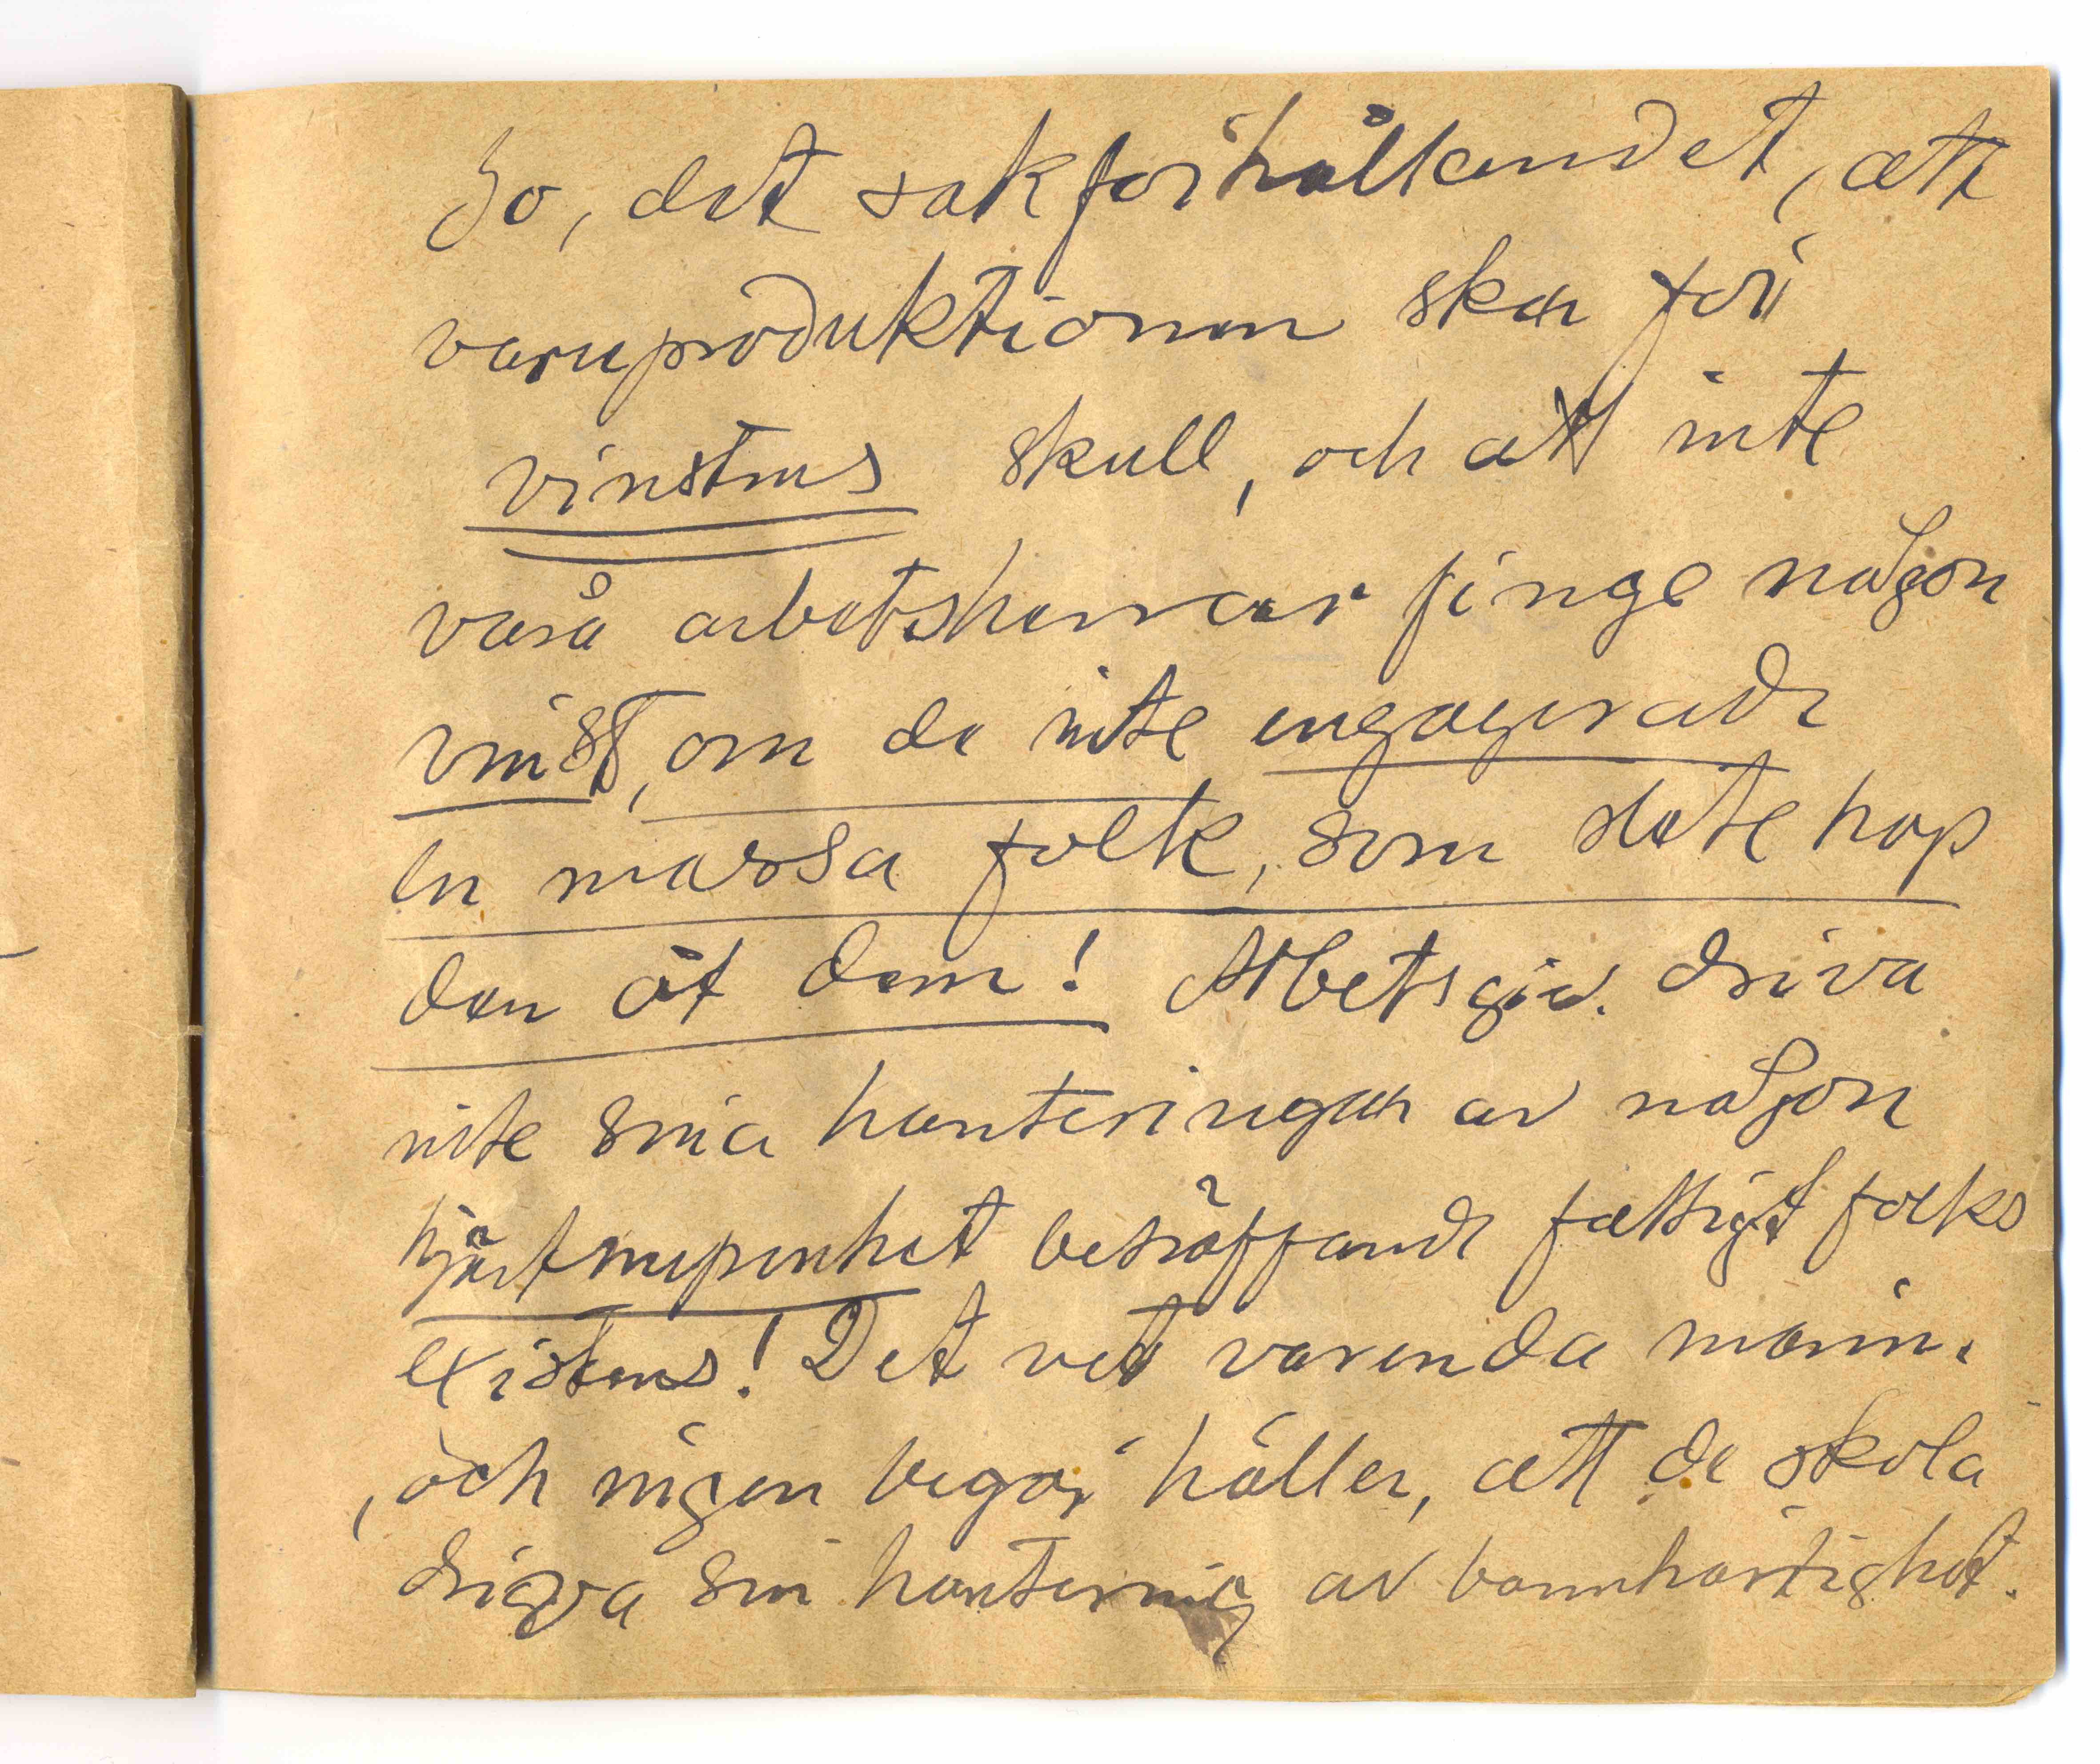 Jo, det sakförhållandet, att
varuproduktionen sker för
vinstens skull, och att inte
våra arbetsherrar finge någon
vinst, om de inte engagerade
en massa folk, som slete hop
den åt dem! Arbetsgiv. driva
inte sina hanteringar av någon
hjärtnupenhet beträffande fattigt folks
existens! Det vet varenda männ.
, och ingen begär häller, att de skola
driva sin hantering av barmhärtighet.